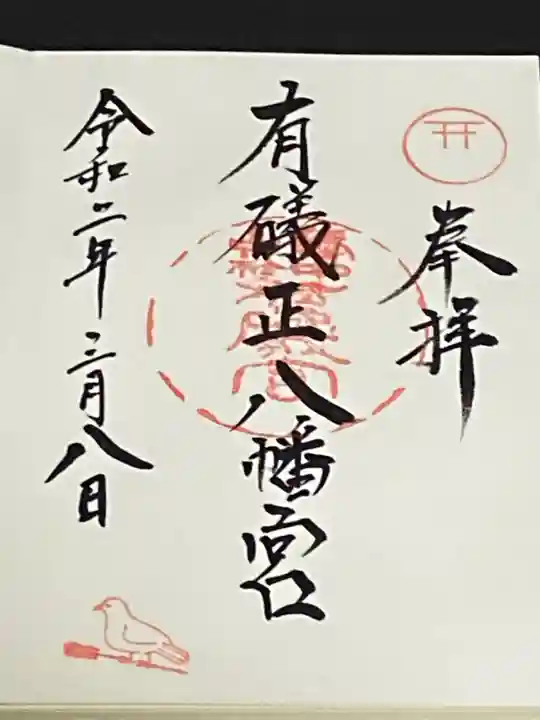 奉拝
有礒正八幡宮
令和二年三月八日